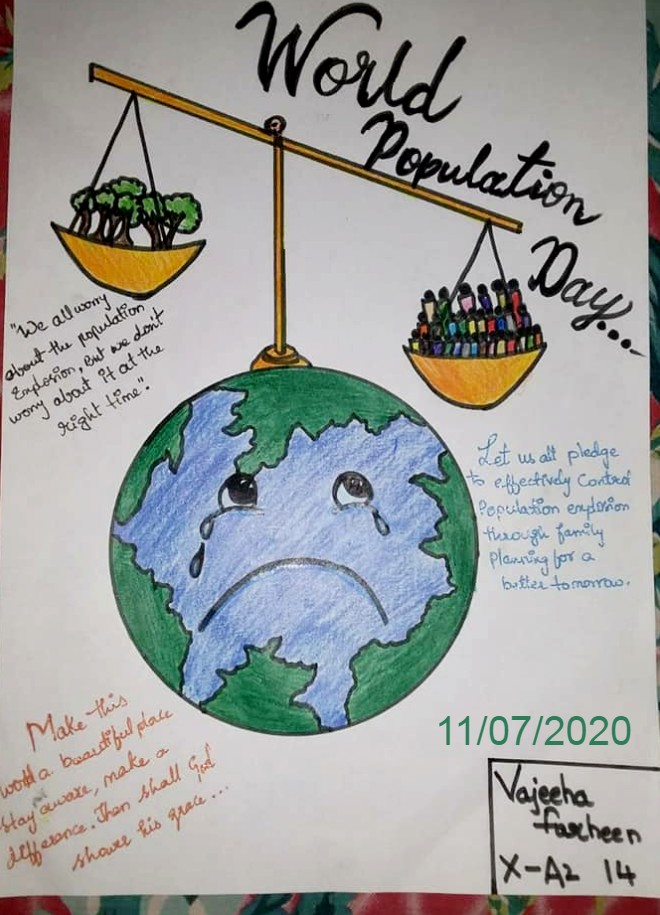 World
Population
Day...
"We all worry
about the population
Explosion, But we don't
worry about it at the
right time".
Let us all pledge
to effectively Control
Population explosion
through family
Planning for a
better tomorrow.
Make this
world a beautiful place
stay aware, make a
difference. Then shall God
shower his grace...
11/07/2020
Vajeeha
farheen
X-A2 14